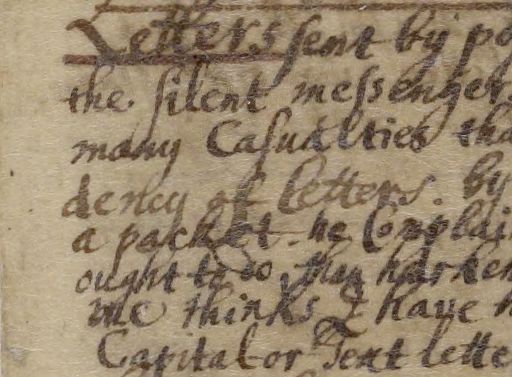 Letters sent by po
the silent messenger
many Casualties tha
dency of letters. by
a packet. he Complai
ought to do, than harken
me thinks I have h
Capital or Text lette